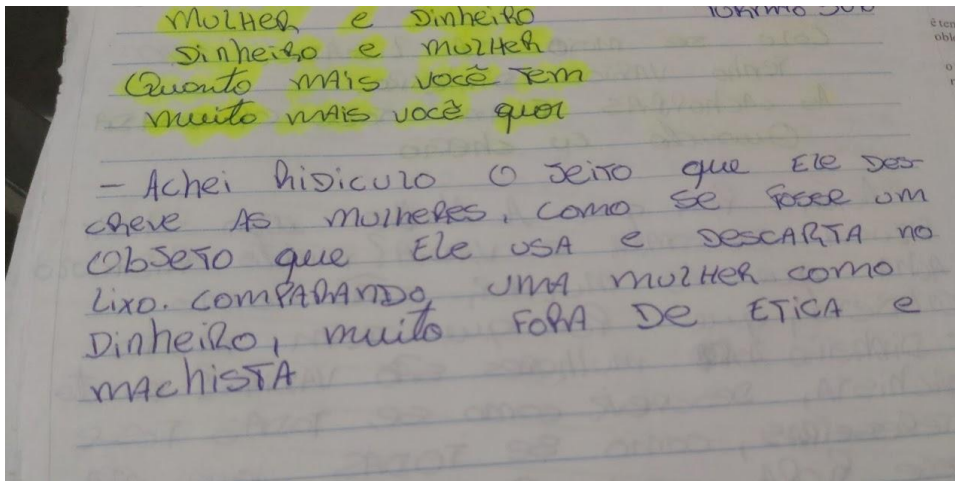 MULHER e Dinheiro
Dinheiro e mulher
Quanto mais você tem
muito mais você quer
- Achei Ridiculo o jeito que Ele Des-
creve As mulheres, como se fosse um
Objeto que Ele usa e DESCARTA no
Lixo. COMPARANDO, UMA MULHER como
Dinheiro, muito FORA DE ETICA e
machista